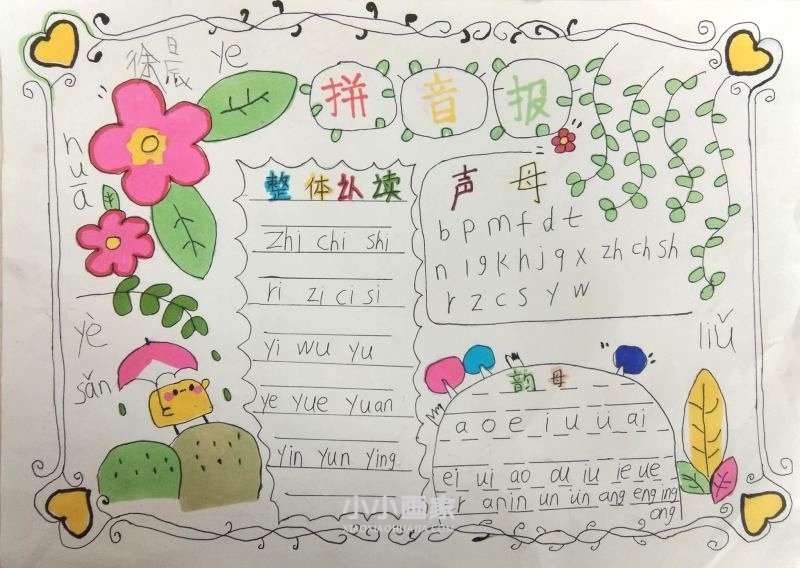 徐晨
ye
拼音报
huā
整体认读
zhi chi shi
ri zi ci si
yi wu yu
ye yue yuan
yin yun ying
声母
b p m f d t
n l g k h j q x zh ch sh
r z c s y w
yè
sǎn
liǔ
韵母
a o e i u ü ai
ei ui ao ou iu ie ue
r an in un ün ang eng ing
ong
小小画家
XIAOXIAOHUAJIA.COM